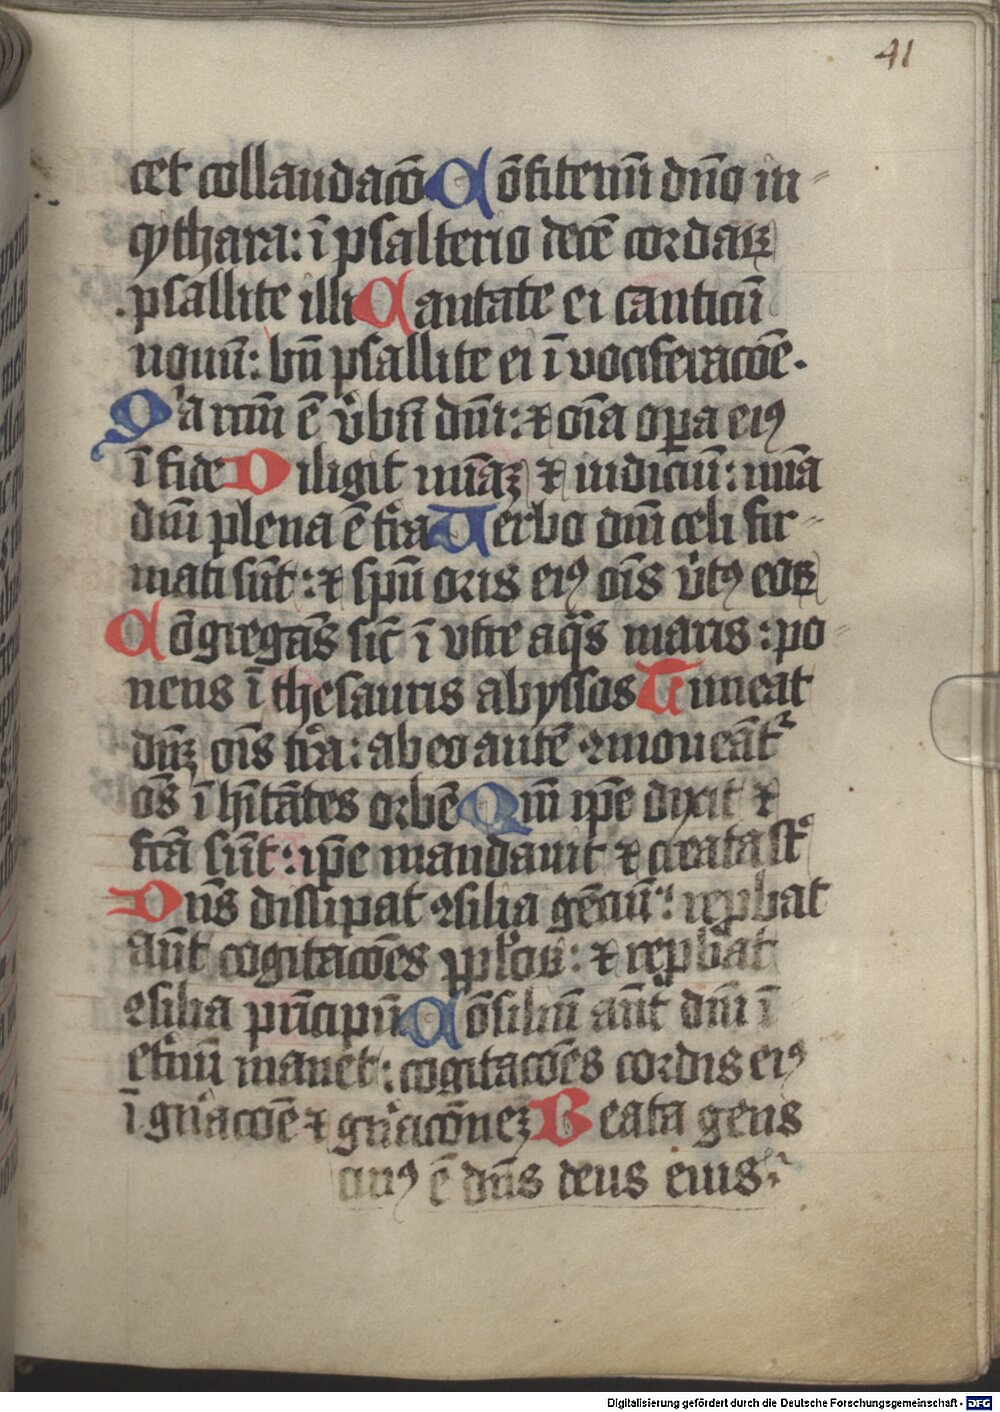 41
cet collaudacō Cōfitemī dn̄o in-
cythara: ī psalterio decē cordaꝝ
psallite illi Cantate ei canticū
nouū: bn̄ psallite ei ī vociferacōe.
Qͥa rectū ē ỽbū dn̄i: ⁊ oīa oꝑa eiꝰ
ī fide Diligit mīaꝫ ⁊ iudiciū: mīa
dn̄i plena ē tr̄a Uerbo dn̄i celi fir-
mati sūt: ⁊ spū oris eiꝰ oīs ỽtꝰ eoꝝ
Cōgregās sic̄ ī vtre aq̄s maris: po-
nens ī thesauris abyssos Timeat
dn̄ꝫ oīs tr̄a: ab eo autē ꝯmoueāt᷑
oēs īhītātes orbē Qm̄ ip̄e dixit ⁊
fc̄a sūt: ip̄e mandauit ⁊ creata st̄
Dn̄s dissipat ꝯsilia gēciū: rep̱bat
aūt cogitacōes ppl̓oꝝ: ⁊ rep̱bat
ꝯsilia prīcipū Cōsiliū aūt dn̄i ī
et̓nū manet: cogitacōes cordis eiꝰ
ī gn̓acōe ⁊ gn̓acōneꝫ Beata gens
cuiꝰ ē dn̄s deus eius:
Digitalisierung gefördert durch die Deutsche Forschungsgemeinschaft - DFG